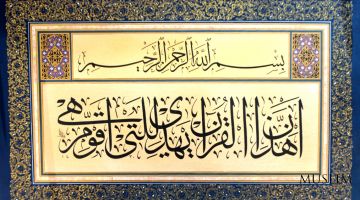 بسم الله الرحمن الرحيم
إن هذا القرآن يهدي للتي هي أقوم
MUSLIM